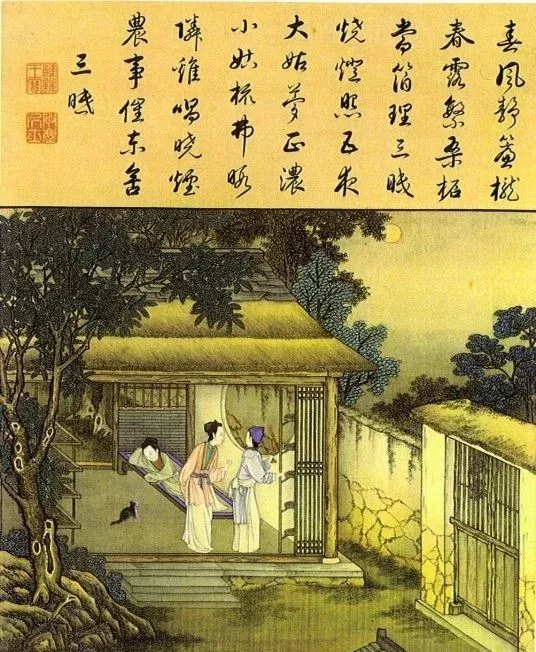 春風靜簾櫳
春露繁桑柘
當箔理三眠
燒燈照五夜
大姑夢正濃
小妹梳弗暇
隣雞唱曉煙
農事催東舍
三眠